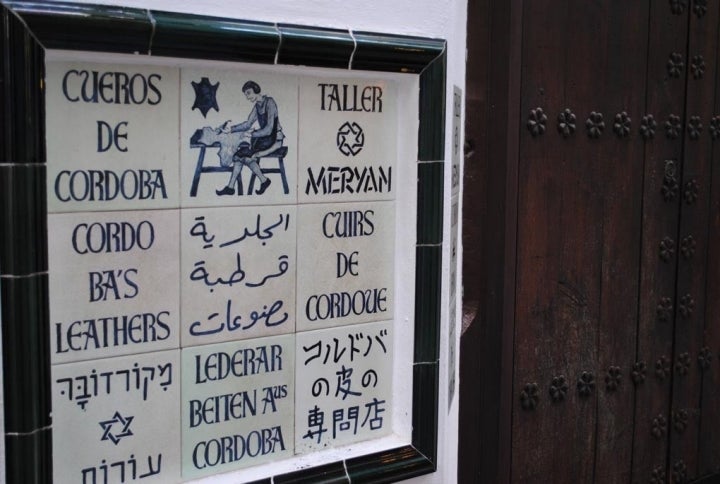 CUEROS
DE
CORDOBA
TALLER
MERYAN
CORDO
BA'S
LEATHERS
الجلدية
قرطبة
مصنوعات
CUIRS
DE
CORDOUE
מִקוֹרדוֹבָּה
עוֹרוֹת
LEDERAR
BEITEN Aus
CORDOBA
コルドバ
の皮の
専門店